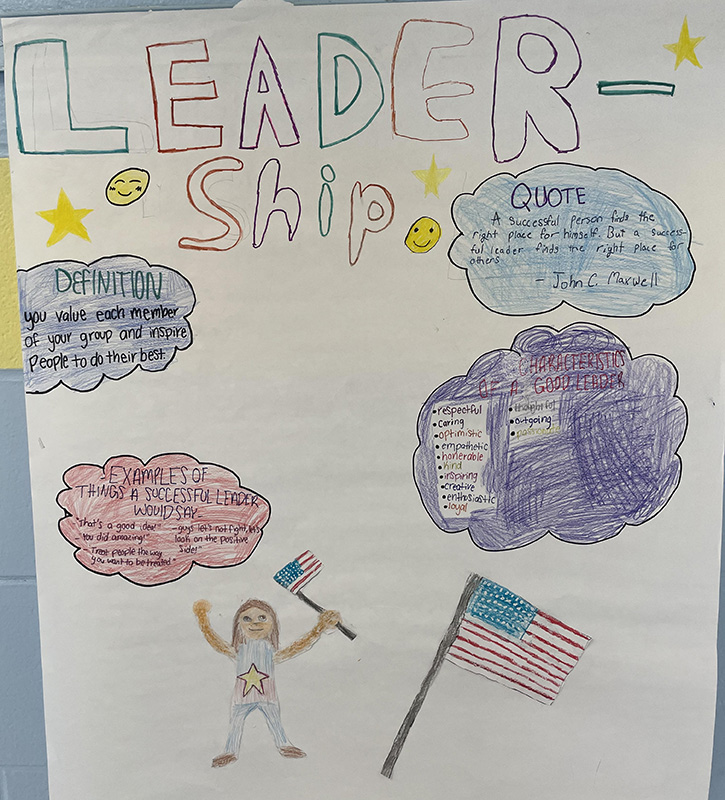 LEADER-
Ship
DEFINITION
you value each member
of your group and inspire
People to do their best.
QUOTE
A successful person finds the
right place for himself. But a success-
ful leader finds the right place for
others
- John C. Maxwell
CHARACTERISTICS
OF A GOOD LEADER
• respectful
• caring
• optimistic
• empathetic
• honerable
• kind
• inspiring
• creative
• enthusiastic
• loyal
• thoughtful
• outgoing
EXAMPLES OF
THINGS A SUCCESSFUL LEADER
WOULD SAY-
"That's a good idea!"
- You did amazing!"
- Treat people the way
you want to be treated"
- guys let's not fight, let's
look on the positive
side!"